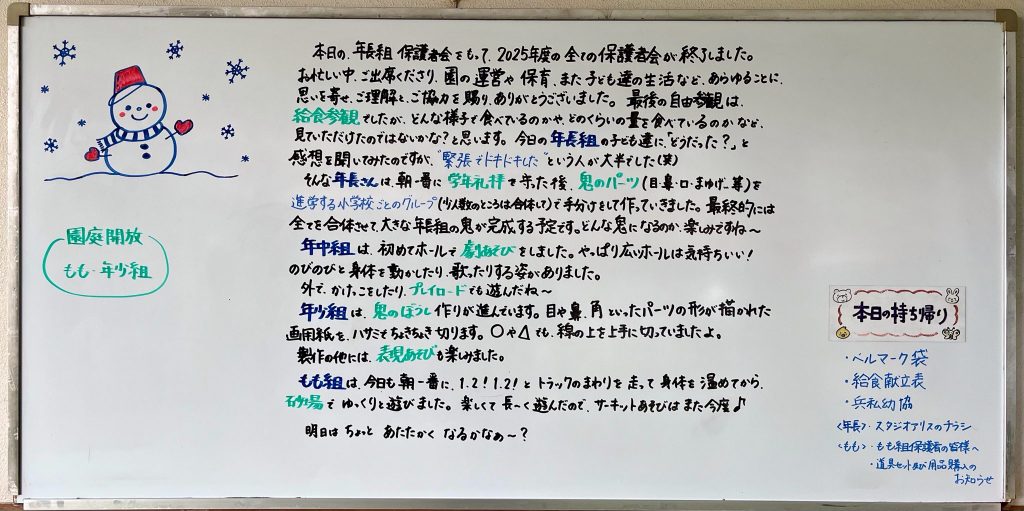 本日の、年長組 保護者会をもって、2025年度の全ての保護者会が終了しました。
お忙しい中、ご出席くださり、園の運営や保育、また子ども達の生活など、あらゆることに、
思いを寄せ、ご理解と、ご協力を賜り、ありがとうございました。最後の自由参観は、
給食参観でしたが、どんな様子で食べているのかや、どのくらいの量を食べているのかなど、
見ていただけたのではないかな？と思います。今日の年長組の子ども達に、「どうだった？」と
感想を聞いてみたのですが、"緊張でドキドキした"という人が大半でした（笑）
そんな年長さんは、朝一番に学年礼拝を守った後、鬼のパーツ（目・鼻・口・まゆげ…等）を
進学する小学校ごとのグループ（少人数のところは合体して）で手分けをして作っていきました。最終的には
全てを合体させて、大きな年長組の鬼が完成する予定です。どんな鬼になるのか、楽しみですね〜
年中組は、初めてホールで劇あそびをしました。やっぱり広いホールは気持ちいい！
のびのびと身体を動かしたり、歌ったりする姿がありました。
外で、かけっこをしたり、プレイロードでも遊んだね〜
年少組は、鬼のぼうし作りが進んでいます。目や鼻、角といったパーツの形が描かれた
画用紙を、ハサミでちょきちょき切ります。○や△でも、線の上を上手に切っていましたよ。
製作の他には、表現あそびも楽しみました。
もも組は、今日も朝一番に、1.2！1.2！とトラックのまわりを走って身体を温めてから、
砂場でゆっくりと遊びました。楽しくて長〜く遊んだので、サーキットあそびはまた今度♪
明日はちょっとあたたかくなるかなぁ〜？
園庭開放
もも・年少組
本日の持ち帰り
・ベルマーク袋
・給食献立表
・兵私幼協
〈年長〉・スタジオアリスのチラシ
〈もも〉・もも組保護者の皆様へ
・道具セット及び用品購入の
お知らせ